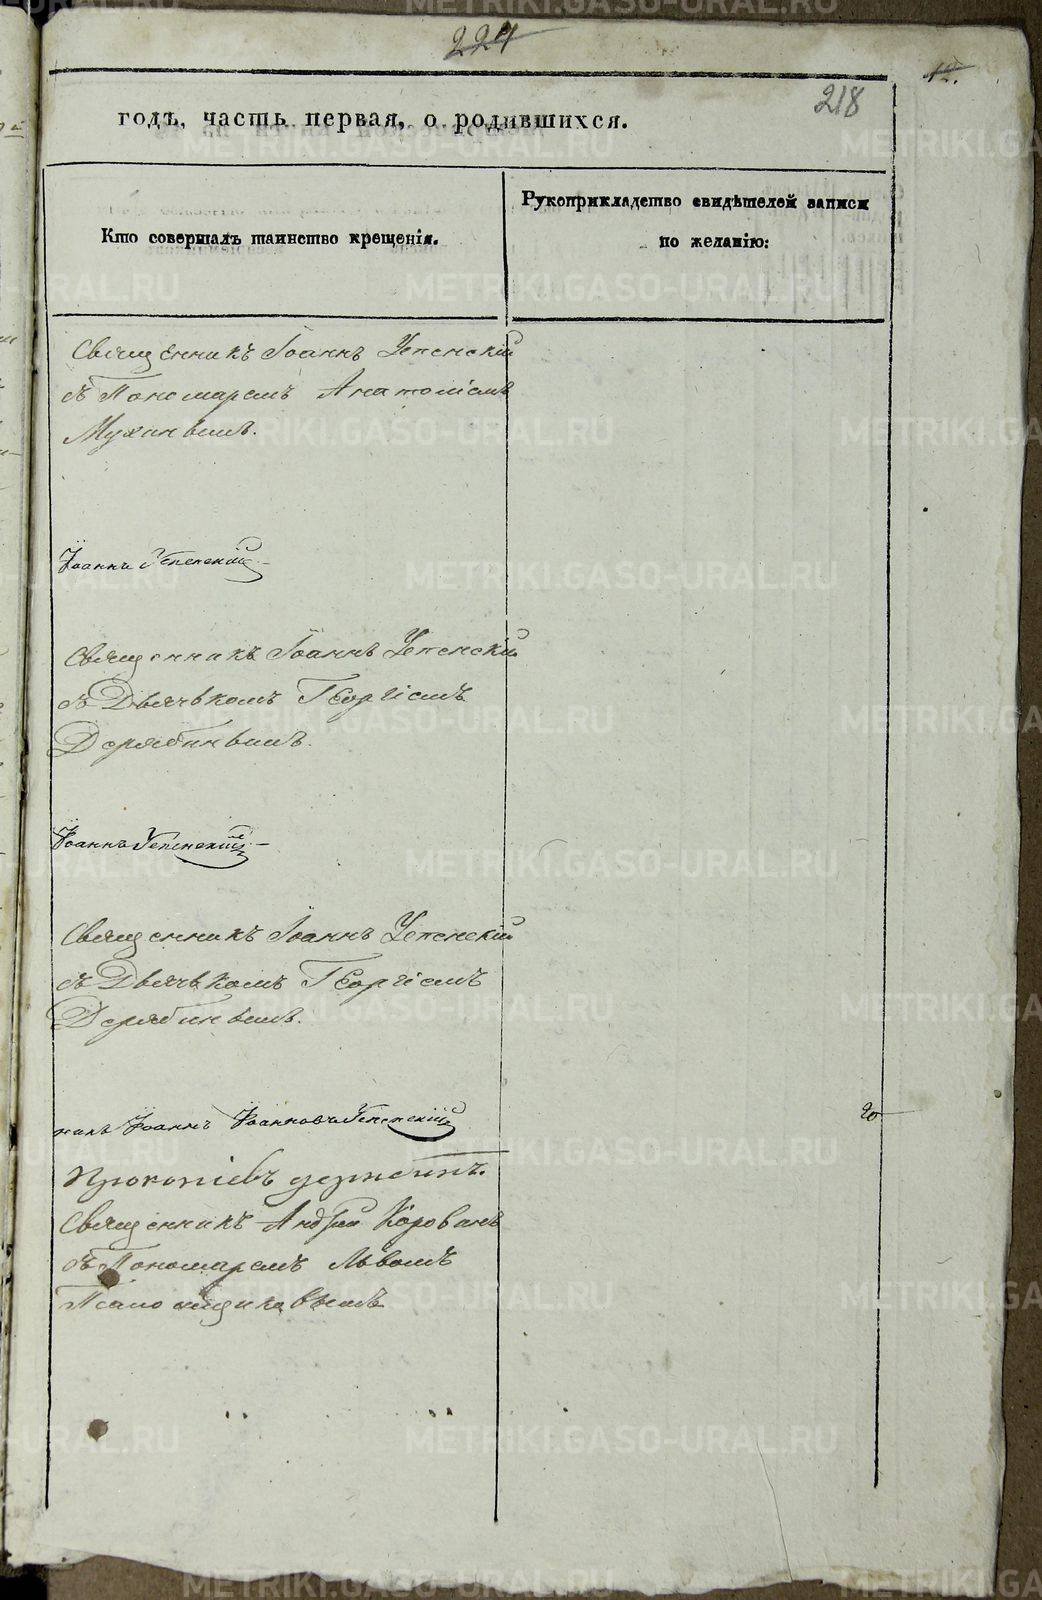 224
12.
218
годъ, часть первая, о родившихся.
Кто совершалъ таинство крещенія.
Рукоприкладство свидѣтелей записи
по желанію:
Священникъ Іоаннъ Успенскій
съ Пономаремъ Анатоліемъ
Мухинымъ.
Іоаннъ Успенскій
Священникъ Іоаннъ Успенскій
съ Дьячькомъ Георгіемъ
Дерябинымъ.
Іоаннъ Успенскій
Священникъ Іоаннъ Успенскій
съ Дьячькомъ Георгіемъ
Дерябинымъ.
никъ Іоаннъ Іоанновъ Успенскій
20
Прокопіевъ
Священникъ Андрей
съ Пономаремъ Львомъ
METRIKI.GASO-URAL.RU